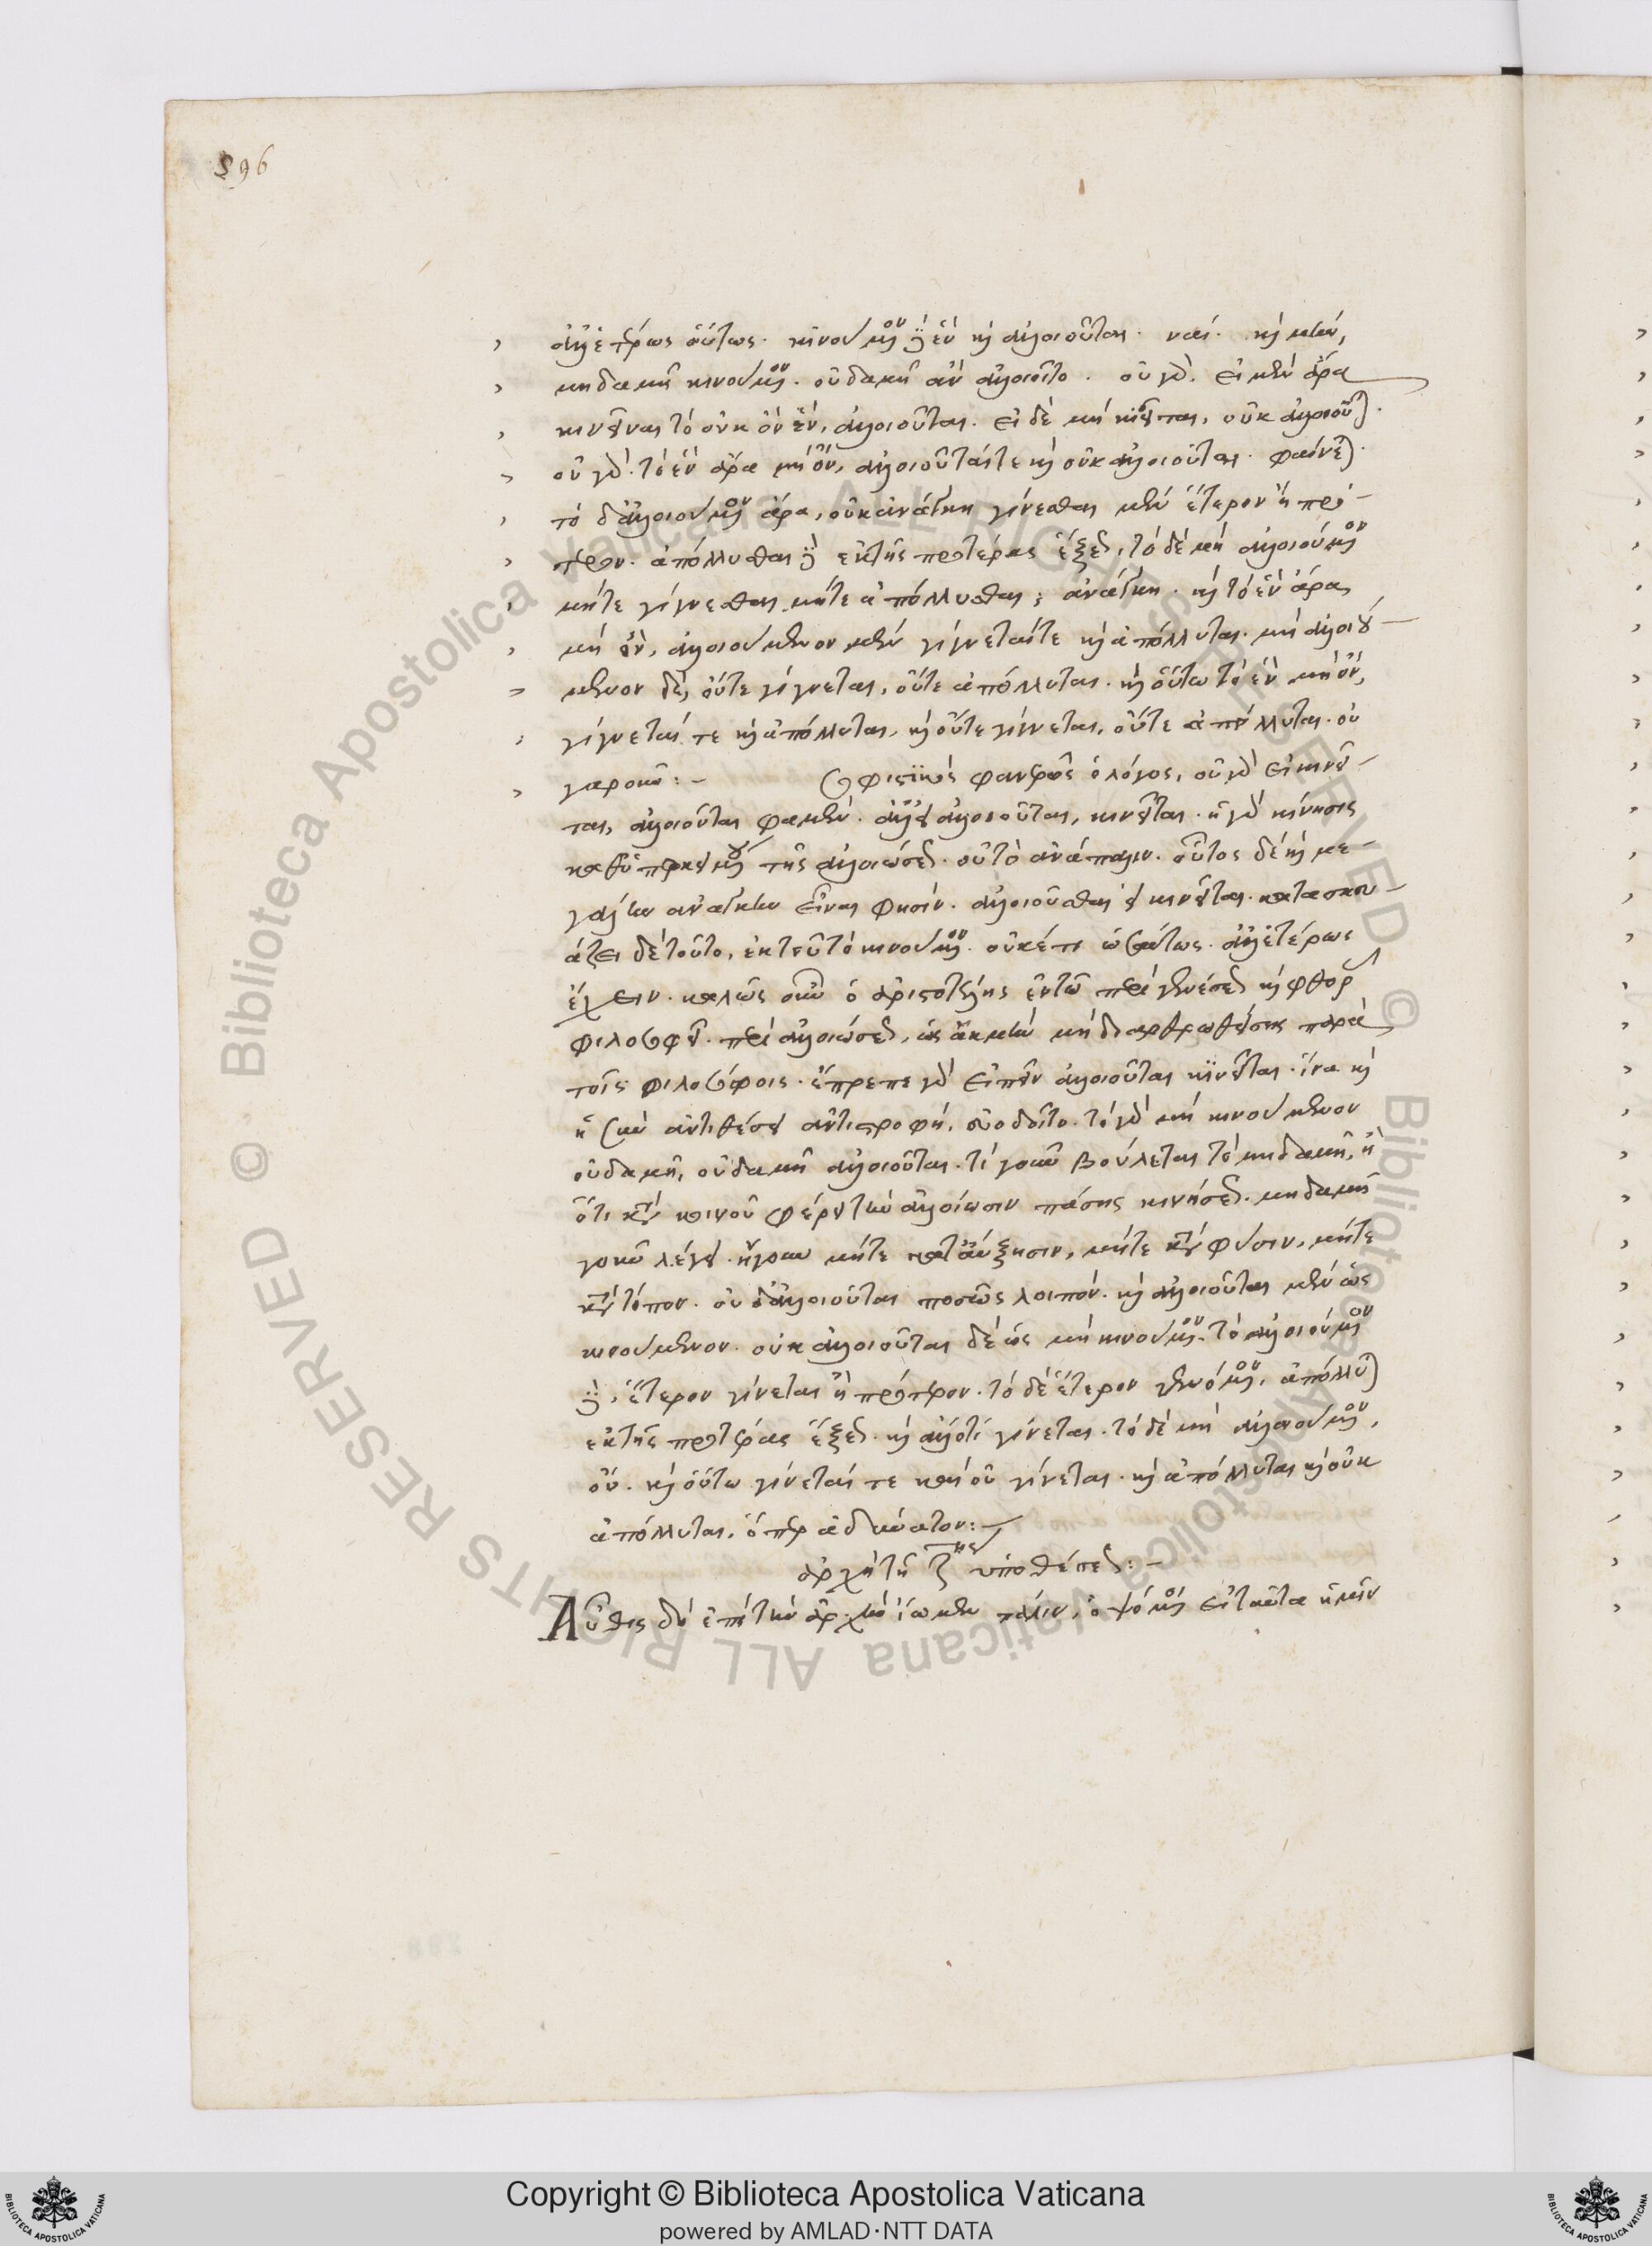 896
ἀλλ' ἑτέρως οὕτως. κινούμενον δὴ ἓν καὶ ἀλλοιοῦται. ναί. καὶ μὴν,
μηδαμῆ κινούμενον. οὐδαμῆ ἂν ἀλλοιοῖτο. οὐ γάρ. εἰ μὲν ἄρα
κινεῖται τὸ οὐκ ὂν ἕν, ἀλλοιοῦται. εἰ δὲ μὴ κινεῖται, οὐκ ἀλλοιοῦται.
οὐ γάρ. τὸ ἓν ἄρα μὴ ὂν, ἀλλοιοῦταί τε καὶ οὐκ ἀλλοιοῦται. φαίνεται.
τὸ δ' ἀλλοιούμενον ἆρα, οὐκ ἀνάγκη γίνεσθαι μὲν ἕτερον ἢ πρό-
τερον. ἀπόλλυσθαι δὲ ἐκ τῆς προτέρας ἕξεως, τὸ δὲ μὴ ἀλλοιούμενον
μήτε γίγνεσθαι μήτε ἀπόλλυσθαι; ἀνάγκη. καὶ τὸ ἓν ἄρα,
μὴ ὂν, ἀλλοιούμενον μὲν γίγνεταί τε καὶ ἀπόλλυται. μὴ ἀλλοιού-
μενον δὲ, οὔτε γίγνεται, οὔτε ἀπόλλυται. καὶ οὕτω τὸ ἓν μὴ ὂν,
γίγνεταί τε καὶ ἀπόλλυται, καὶ οὔτε γίγνεται, οὔτε ἀπόλλυται. οὐ
γὰρ οὖν:- Σοφιστικὸς φανερῶς ὁ λόγος, οὐ γὰρ εἰ κινεῖ-
ται, ἀλλοιοῦται φαμὲν. ἀλλ' εἰ ἀλλοιοῦται, κινεῖται. ἡ γὰρ κίνησις
καθ' ὑπερκειμένου τῆς ἀλλοιώσεως. οὐ τὸ ἀνάπαλιν. οὗτος δὲ καὶ με-
γάλην ἀνάγκην εἶναι φησίν. ἀλλοιοῦσθαι εἰ κινεῖται. κατασκευ-
άζει δὲ τοῦτο, ἐκ τοῦ τὸ κινούμενον. οὐκέτι ὡσαύτως. ἀλλ' ἑτέρως
ἔχειν. καλῶς οὖν ὁ ἀριστοτέλης ἐν τῶ περὶ γενέσεως καὶ φθορᾶς
φιλοσοφεῖ. περὶ ἀλλοιώσεως, ὡς ἀκμὴν μὴ διαρθρωθείσης παρὰ
τοῖς φιλοσόφοις. ἔπρεπε γὰρ εἰπεῖν ἀλλοιοῦται κινεῖται. ἵνα καὶ
ἡ σὺν ἀντιθέσει ἀντιστροφή, εὐοδοῖτο. τὸ γὰρ μὴ κινούμενον
οὐδαμῆ, οὐδαμῆ ἀλλοιοῦται. τί γοῦν βούλεται τὸ μηδαμῆ, ἢ
ὅτι κατὰ κοινοῦ φέρει τὴν ἀλλοίωσιν πάσης κινήσεως. μηδαμῆ
γοῦν λέγει. ἤγουν μήτε κατ' αὔξησιν, μήτε κατὰ φύσιν, μήτε
κατὰ τόπον. οὐδ' ἀλλοιοῦται ποσῶς λοιπόν. καὶ ἀλλοιοῦται μὲν ὡς
κινούμενον. οὐκ ἀλλοιοῦται δὲ ὡς μὴ κινούμενον. τὸ ἀλλοιούμενον
δὲ, ἕτερον γίνεται ἢ πρότερον. τὸ δὲ ἕτερον γενόμενον, ἀπόλλυται
ἐκ τῆς προτέρας ἕξεως. καὶ ἄλλό τι γίνεται. τὸ δὲ μὴ ἀλλοιούμενον,
οὔ. καὶ οὕτω γίνεταί τε καὶ οὐ γίνεται. καὶ ἀπόλλυται καὶ οὐκ
ἀπόλλυται, ὅπερ ἀδύνατον:-
ἀρχὴ τῆς ζης ὑποθέσεως:-
Αὖθις δὴ ἐπὶ τὴν ἀρχὴν ἴωμεν πάλιν, ὀψόμενοι εἰ ταῦτα ἡμῖν
Copyright © Biblioteca Apostolica Vaticana
powered by AMLAD·NTT DATA
© Biblioteca Apostolica Vaticana ALL RIGHTS RESERVED © Biblioteca Apostolica Vaticana ALL RIGHTS RESERVED